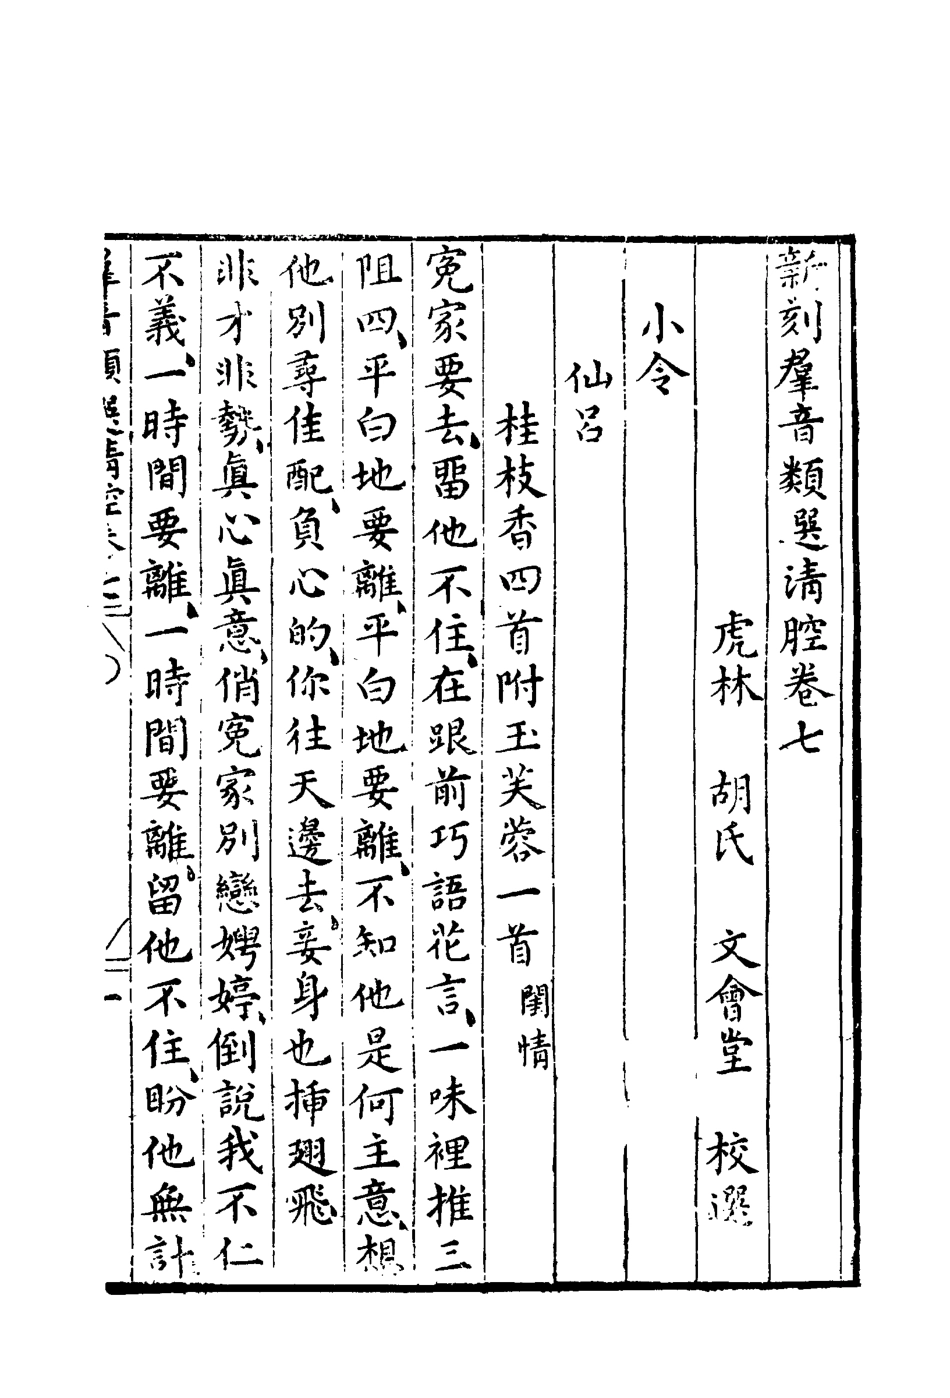 新刻羣音類選清腔卷七
虎林 胡氏 文會堂 校選
小令
仙呂
桂枝香四首附玉芙蓉一首 閨情
寃家要去、畱他不住、在跟前巧語花言、一味裡推三
阻四、平白地要離、平白地要離、不知他是何主意、想
他別尋佳配、負心的、你往天邊去。妾身也揷翅飛、
非才非勢、眞心眞意、俏寃家別戀娉婷、倒說我不仁
不義、一時間要離、一時間要離。留他不住、盼他無計
羣音類選清腔卷七 一